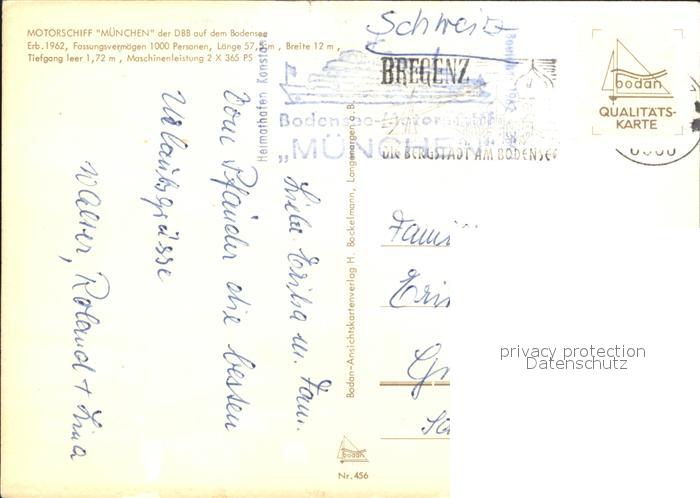 MOTORSCHIFF "MÜNCHEN" der DBB auf dem Bodensee
Erb. 1962, Fassungsvermögen 1000 Personen, Länge 57, m, Breite 12 m,
Tiefgang leer 1,72 m, Maschinenleistung 2 X 365 PS
Schweiz
BREGENZ
DIE BERGSTADT AM BODENSEE
Bodensee-Motorschiff
„MÜNCHEN
Heimathafen Konstanz
bodan
QUALITÄTS-
KARTE
Liebe Erika u. Fam.
Vom Pfänder die besten
Urlaubsgrüsse
Walter, Roland + Lina
Bodan-Ansichtskartenverlag H. Bockelmann, Langenargen a. B.
Fami
Eri
G
privacy protection
Datenschutz
bodan
Nr. 456